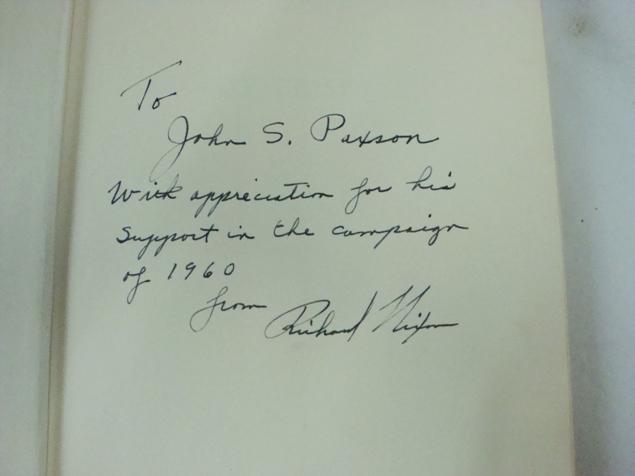 To
John S. Paxson
With appreciation for his
support in the campaign
of 1960
from
Richard Nixon